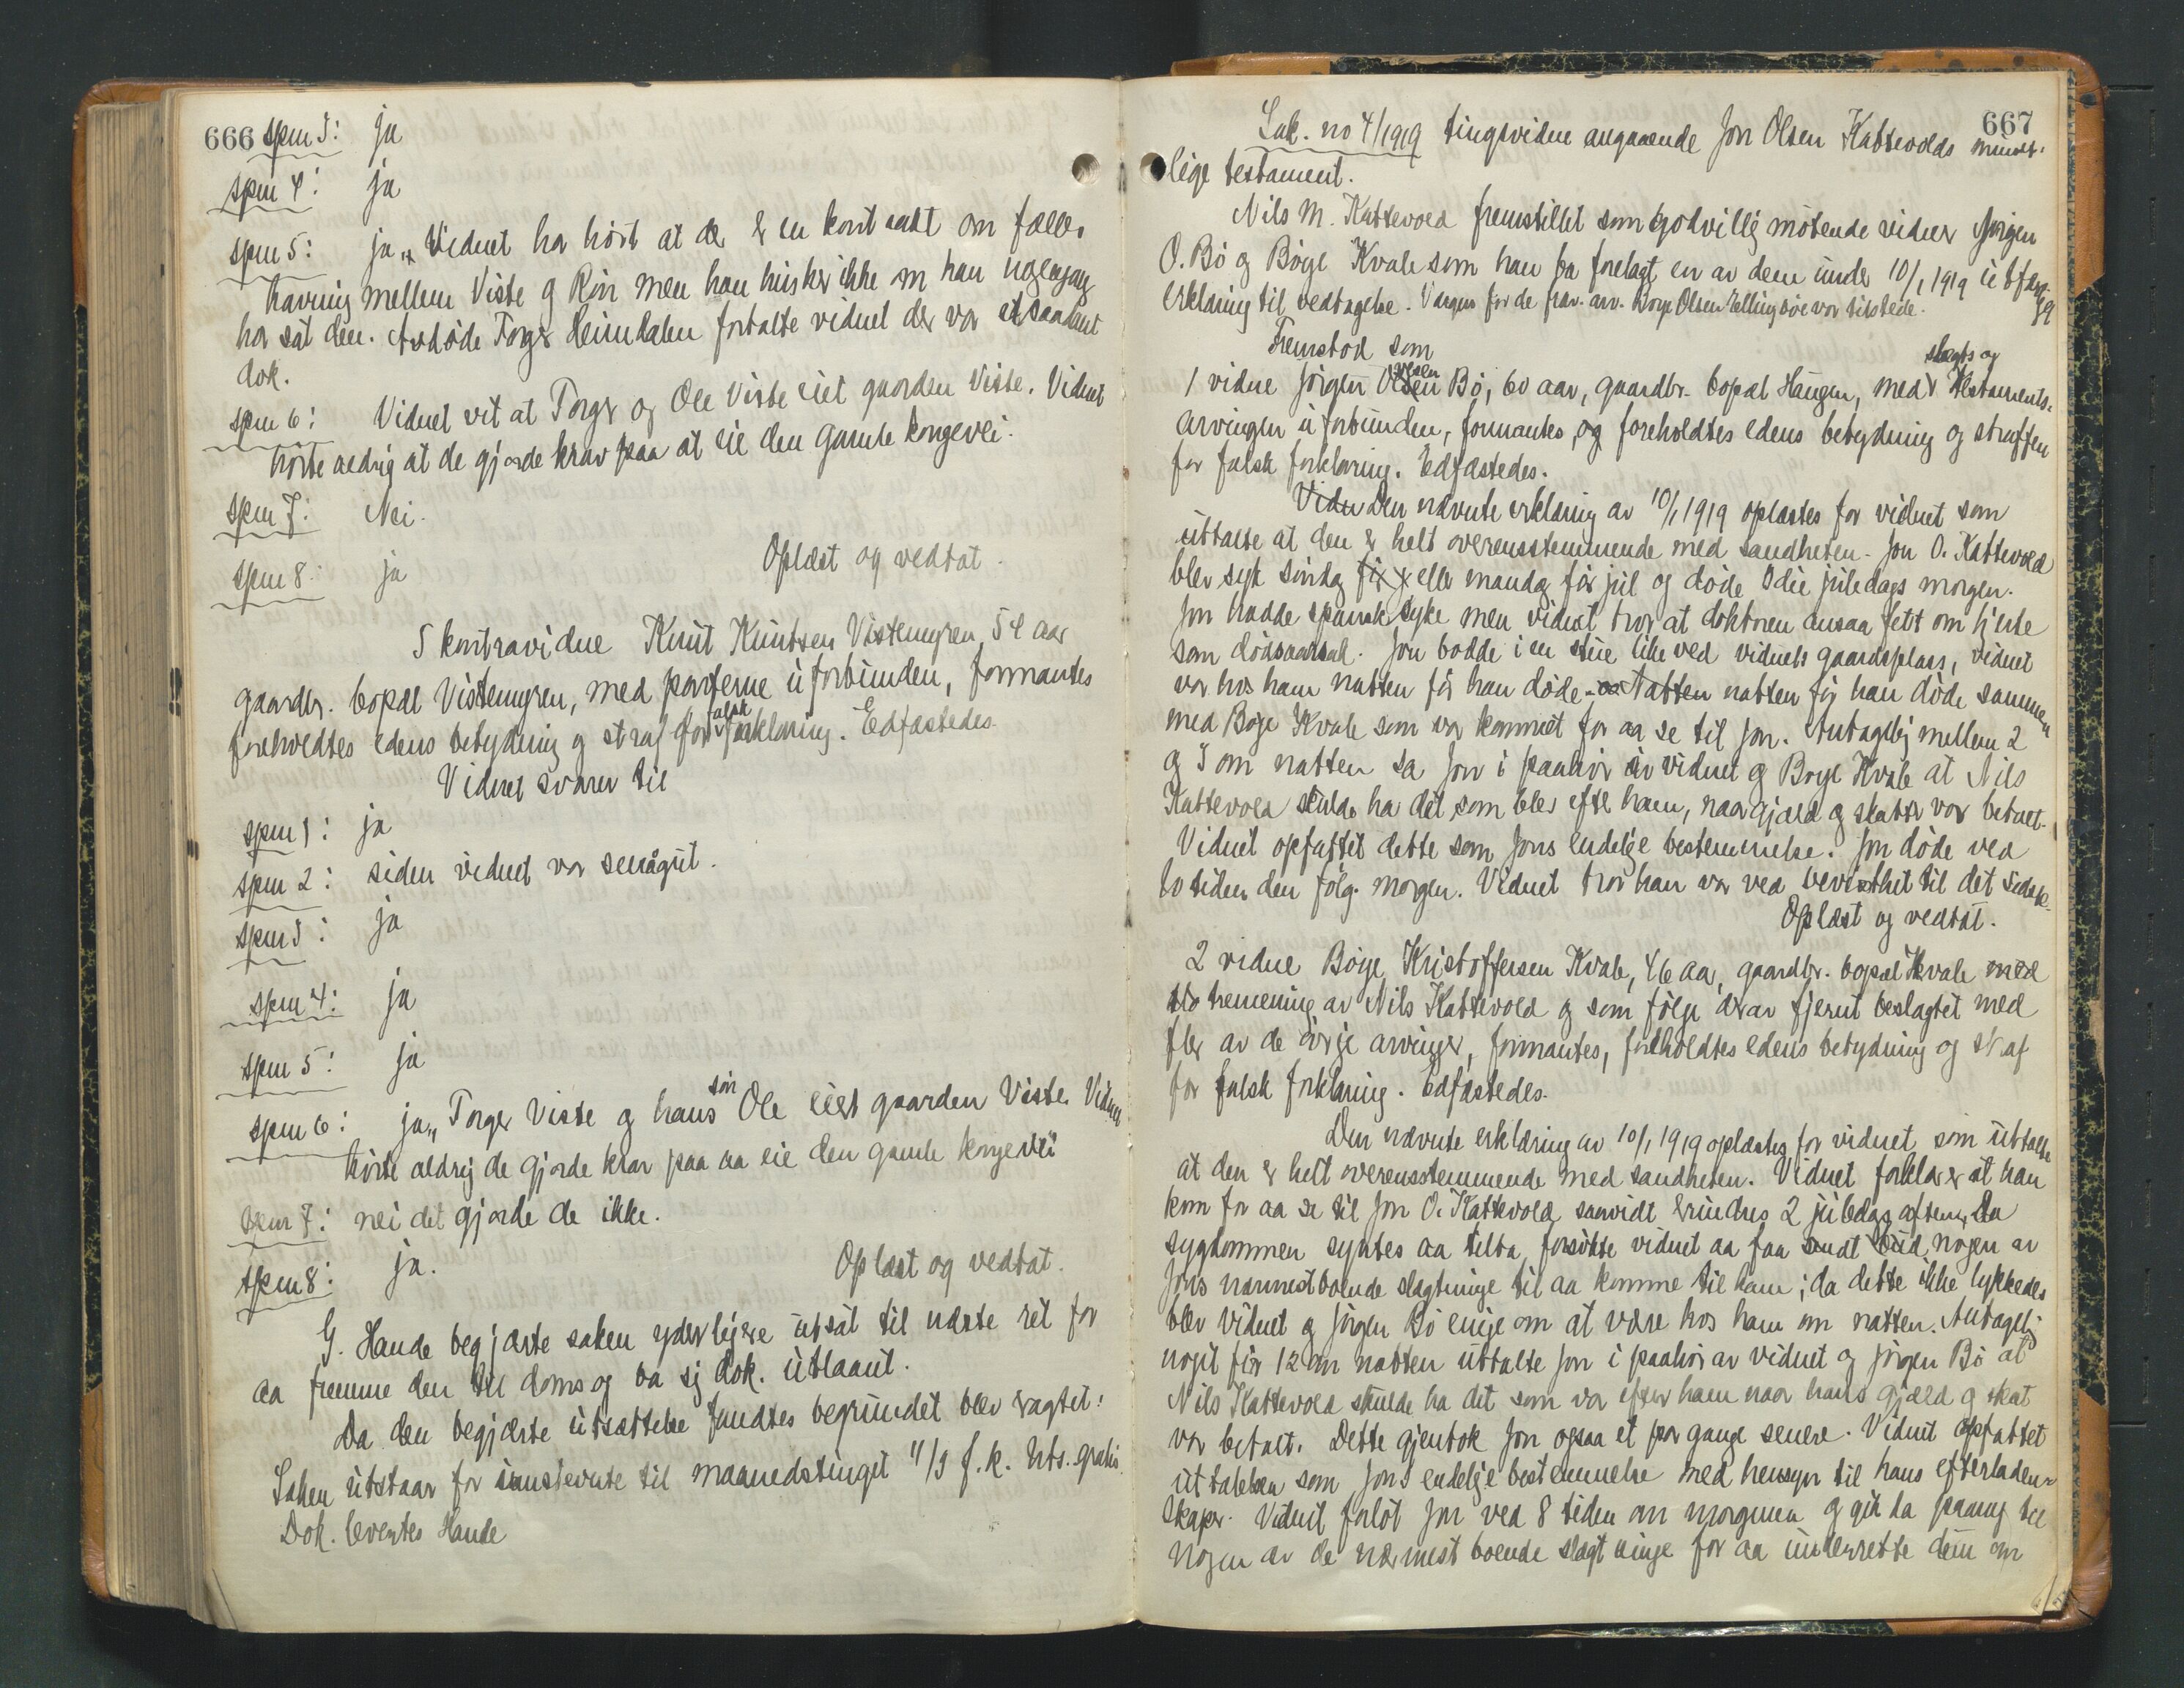 666 spm 3: ja
spm 4: ja
spm 5: ja, Vidnet har hört at der er en kontrakt om fælles
havning mellem Viste og Rön men han husker ikke om han nogengang
har sat den. Avdöde Torger Heimdalen fortalte vidnet der var et saadant
dok.
spm 6: Vidnet vet at Torger og Ole Viste eiet gaarden Viste. Vidnet
hörte aldrig at de gjorde krav paa at eie den gamle kongevei.
spm 7: Nei.
spm 8: ja Oplæst og vedtat.
5 kontravidne Knut Knutsen Vistemyren, 54 aar
gaardbr. bopæl Vistemyren, med parterne uforbunden, formantes
foreholdtes edens betydning og straf for falsk forklaring. Edfæstedes.
Vidnet svarer til
spm 1: ja
spm 2: siden vidnet var smaagut.
spm 3: ja
spm 4: ja
spm 5: ja
spm 6: ja, Torger Viste og hans sön Ole eiet gaarden Viste. Vidnet
hörte aldrig de gjorde krav paa aa eie den gamle kongevei
spm 7: nei det gjorde de ikke.
spm 8: ja. Oplæst og vedtat.
G. Hande begjærte saken yderligere utsat til næste ret for
aa fremme den til doms og ba sig dok. utlaant.
Da den begjærte utsættelse fandtes begrundet blev ragtet:
Saken utstaar for instevnte til maanedstinget 11/3 f. k. Uts. gratis.
Dok. levertes Hande
667
Sak. no 4/1919 tingsvidne angaaende Jon Olsen Kattevolds mundt-
lige testament.
Nils M. Kattevold fremstillet som godvillig mötende vidner Jörgen
O. Bö og Böye Kvale som han ba forelagt en av dem under 10/1 1919 utfærdig
erklæring til vedtagelse. Vergen for de frav. arv. Borge Olsen Ellingböe var tilstede.
Fremstod som
1 vidne Jörgen Olsen Bö, 60 aar, gaardbr. bopæl Haugen, med slegts og testaments-
arvingen uforbunden, formantes, og foreholdtes edens betydning og straffen
for falsk forklaring. Edfæstedes.
Vidn Den nævnte erklæring av 10/1 1919 oplæstes for vidnet som
uttalte at den er helt overensstemmende med sandheten. Jon O. Kattevold
blev syk söndag för j eller mandag för jul og döde 3die juledags morgen.
Jon hadde spansk syke men vidnet tror at doktoren ansaa fett om hjerte
som dödsaarsak. Jon bodde i en stue like ved vidnets gaardsplass, vidnet
var hos ham natten för han döde. og Natten natten för han döde sammen
med Böye Kvale som var kommet for aa se til Jon. Antagelig mellem 2
og 3 om natten sa Jon i paahör av vidnet og Böye Kvale at Nils
Kattevold skulde ha det som blev efter ham, naar gjæld og skatter var betalt.
Vidnet opfattet dette som Jons endelige bestemmelse. Jon döde ved
10 tiden den fölg. morgen. Vidnet tror han var ved bevissthet til det sidste.
Oplæst og vedtat.
2 vidne Böye Kristoffersen Kvale, 46 aar, gaardbr. bopæl Kvale med
tremenning av Nils Kattevold og som fölge derav fjernt beslagtet med
fler av de övrige arvinger, formantes, foreholdtes edens betydning og straf
for falsk forklaring. Edfæstedes.
Den nævnte erklæring av 10/1 1919 oplæstes for vidnet, som uttalte
at den er helt overensstemmende med sandheten. Vidnet forklarer at han
kom for aa se til Jon O. Kattevold saavidt erindres 2 juledags aften, Da
sygdommen syntes aa tilta, forsökte vidnet aa faa sendt bud nogen av
Jons nærmestboende slægtninge til aa komme til ham; da dette ikke lykkedes
blev vidnet og Jörgen Bö enige om at være hos ham om natten. Antagelig
noget för 12 om natten uttalte Jon i paahör av vidnet og Jörgen Bö at
Nils Kattevold skulde ha det som var efter ham naar hans gjæld og skat
var betalt. Dette gjentok Jon ogsaa et par gange senere. Vidnet opfattet
uttalelsen som Jons endelige bestemmelse med hensyn til hans efterladen-
skaper. Vidnet forlöt Jon ved 8 tiden om morgenen og gik da paany til
nogen av de nærmest boende slægtninge for aa underrette dem om